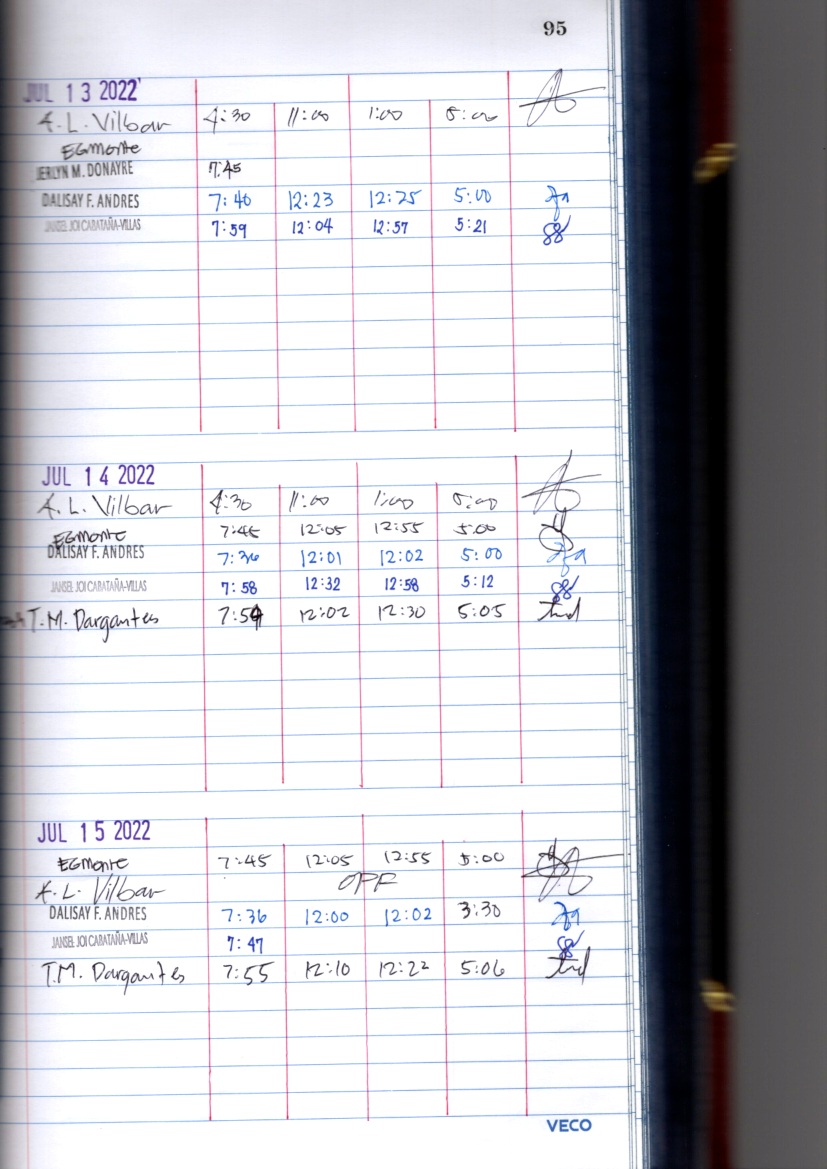 95
JUL 13 2022
A. L. Vilbar 4:30 11:00 1:00 5:00
EGmonte
JERLYN M. DONAYRE 7:45
DALISAY F. ANDRES 7:40 12:23 12:25 5:00
JANSEL JOI CABATAÑA-VILLAS 7:59 12:04 12:57 5:21
JUL 14 2022
A. L. Vilbar 4:30 11:00 1:00 5:00
EGmonte 7:45 12:05 12:55 5:00
DALISAY F. ANDRES 7:36 12:01 12:02 5:00
JANSEL JOI CABATAÑA-VILLAS 7:58 12:32 12:58 5:12
T.M. Dargantes 7:59 12:02 12:30 5:05 tmd
JUL 15 2022
EGmonte 7:45 12:05 12:55 5:00
A. L. Vilbar OFF
DALISAY F. ANDRES 7:36 12:00 12:02 3:30
JANSEL JOI CABATAÑA-VILLAS 7:47
T.M. Dargantes 7:55 12:10 12:22 5:06 tmd
VECO